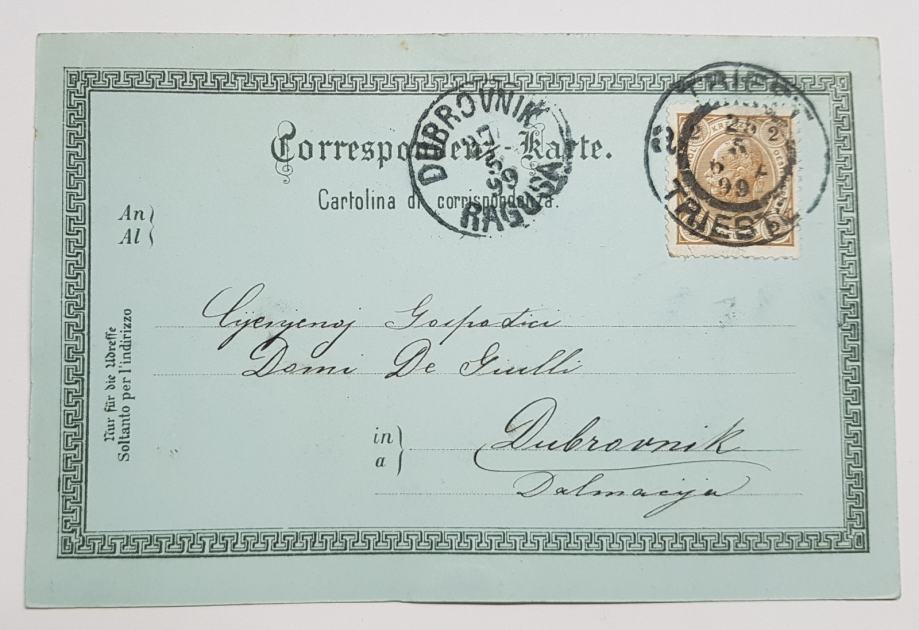 Correspondenz-Karte.
Cartolina di corrispondenza.
DUBROVNIK
27
5
99
RAGUSA
TRIEST
2 2
25
5
6
99
TRIESTE
An
Al
Nur für die Adresse
Soltanto per l'indirizzo
Cijenjenoj Gospodici
Domi De Giulli
in
a
Dubrovnik
Dalmacija